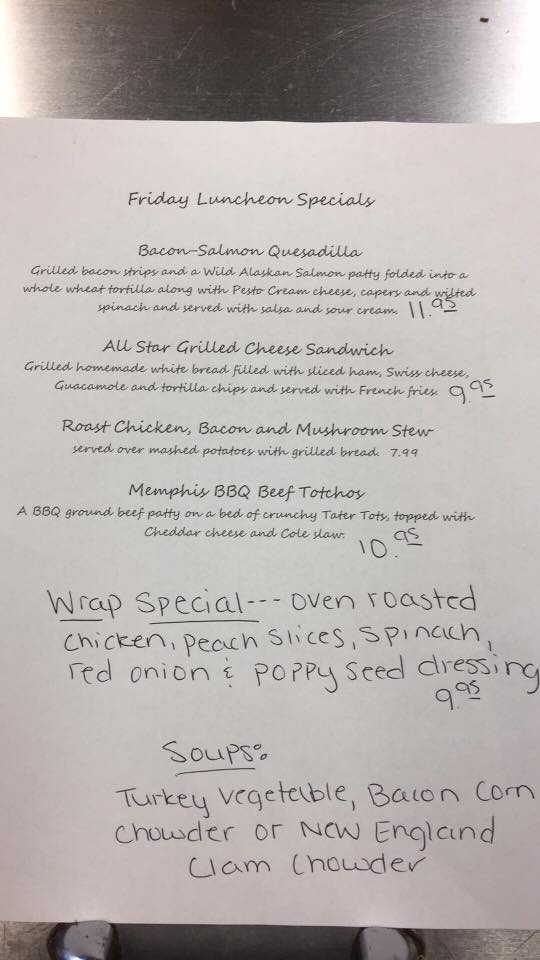 Friday Luncheon Specials
Bacon-Salmon Quesadilla
Grilled bacon strips and a Wild Alaskan Salmon patty folded into a
whole wheat tortilla along with Pesto Cream cheese, capers and wilted
spinach and served with salsa and sour cream. 11.95
All Star Grilled Cheese Sandwich
Grilled homemade white bread filled with sliced ham, Swiss cheese,
Guacamole and tortilla chips and served with French fries. 9.95
Roast Chicken, Bacon and Mushroom Stew
served over mashed potatoes with grilled bread. 7.99
Memphis BBQ Beef Totchos
A BBQ ground beef patty on a bed of crunchy Tater Tots, topped with
Cheddar cheese and Cole slaw. 10.95
Wrap Special--- oven roasted
chicken, peach slices, spinach,
red onion & poppy seed dressing
9.95
Soups:
Turkey Vegetable, Bacon Corn
Chowder or New England
Clam Chowder